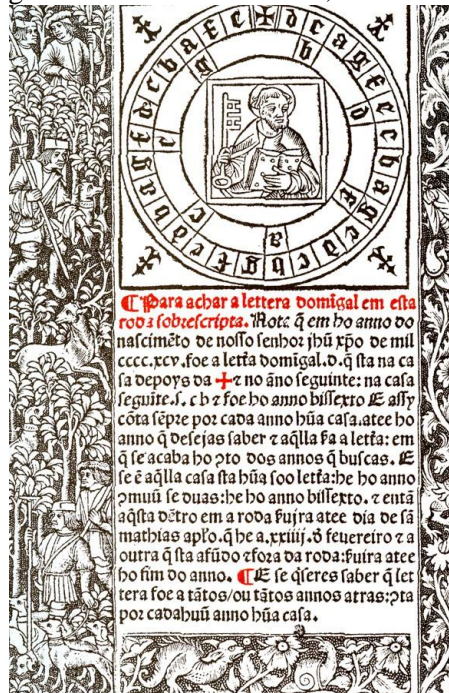 ¶Para achar a lettera domĩgal em esta
roda sobescripta. Nota q̃ em ho anno do
nascimẽto de nosso senhor jhũ xp̃o de mil
cccc.xcv.foe a letr̃a domĩgal.d.q̃ sta na ca
sa depoys da ✚ ⁊ no ãno seguinte: na casa
seguĩte.s. c b ⁊ foe ho anno bissexto E assy
cõta sẽpre por cada anno hũa casa.atee ho
anno q̃ desejas saber ⁊ aq̃lla sa a letr̃a: em
q̃ se acaba ho ꝯto dos annos q̃ buscas. E
se ẽ aq̃lla casa sta hũa soo letr̃a:he ho anno
ꝯmuũ se duas:he ho anno bissexto. ⁊ entã
aq̃sta dẽtro em a roda ſuira atee dia de sã
mathias apl̃o.q̃ he a.xxiiij.d̃ feuereiro ⁊ a
outra q̃ sta afũdo ⁊fora da roda:ſuira atee
ho fim do anno. ¶E se q̃seres saber q̃ let
tera foe a tãtos/ou tãtos annos atras:ꝯta
por cadahuũ anno hũa casa.